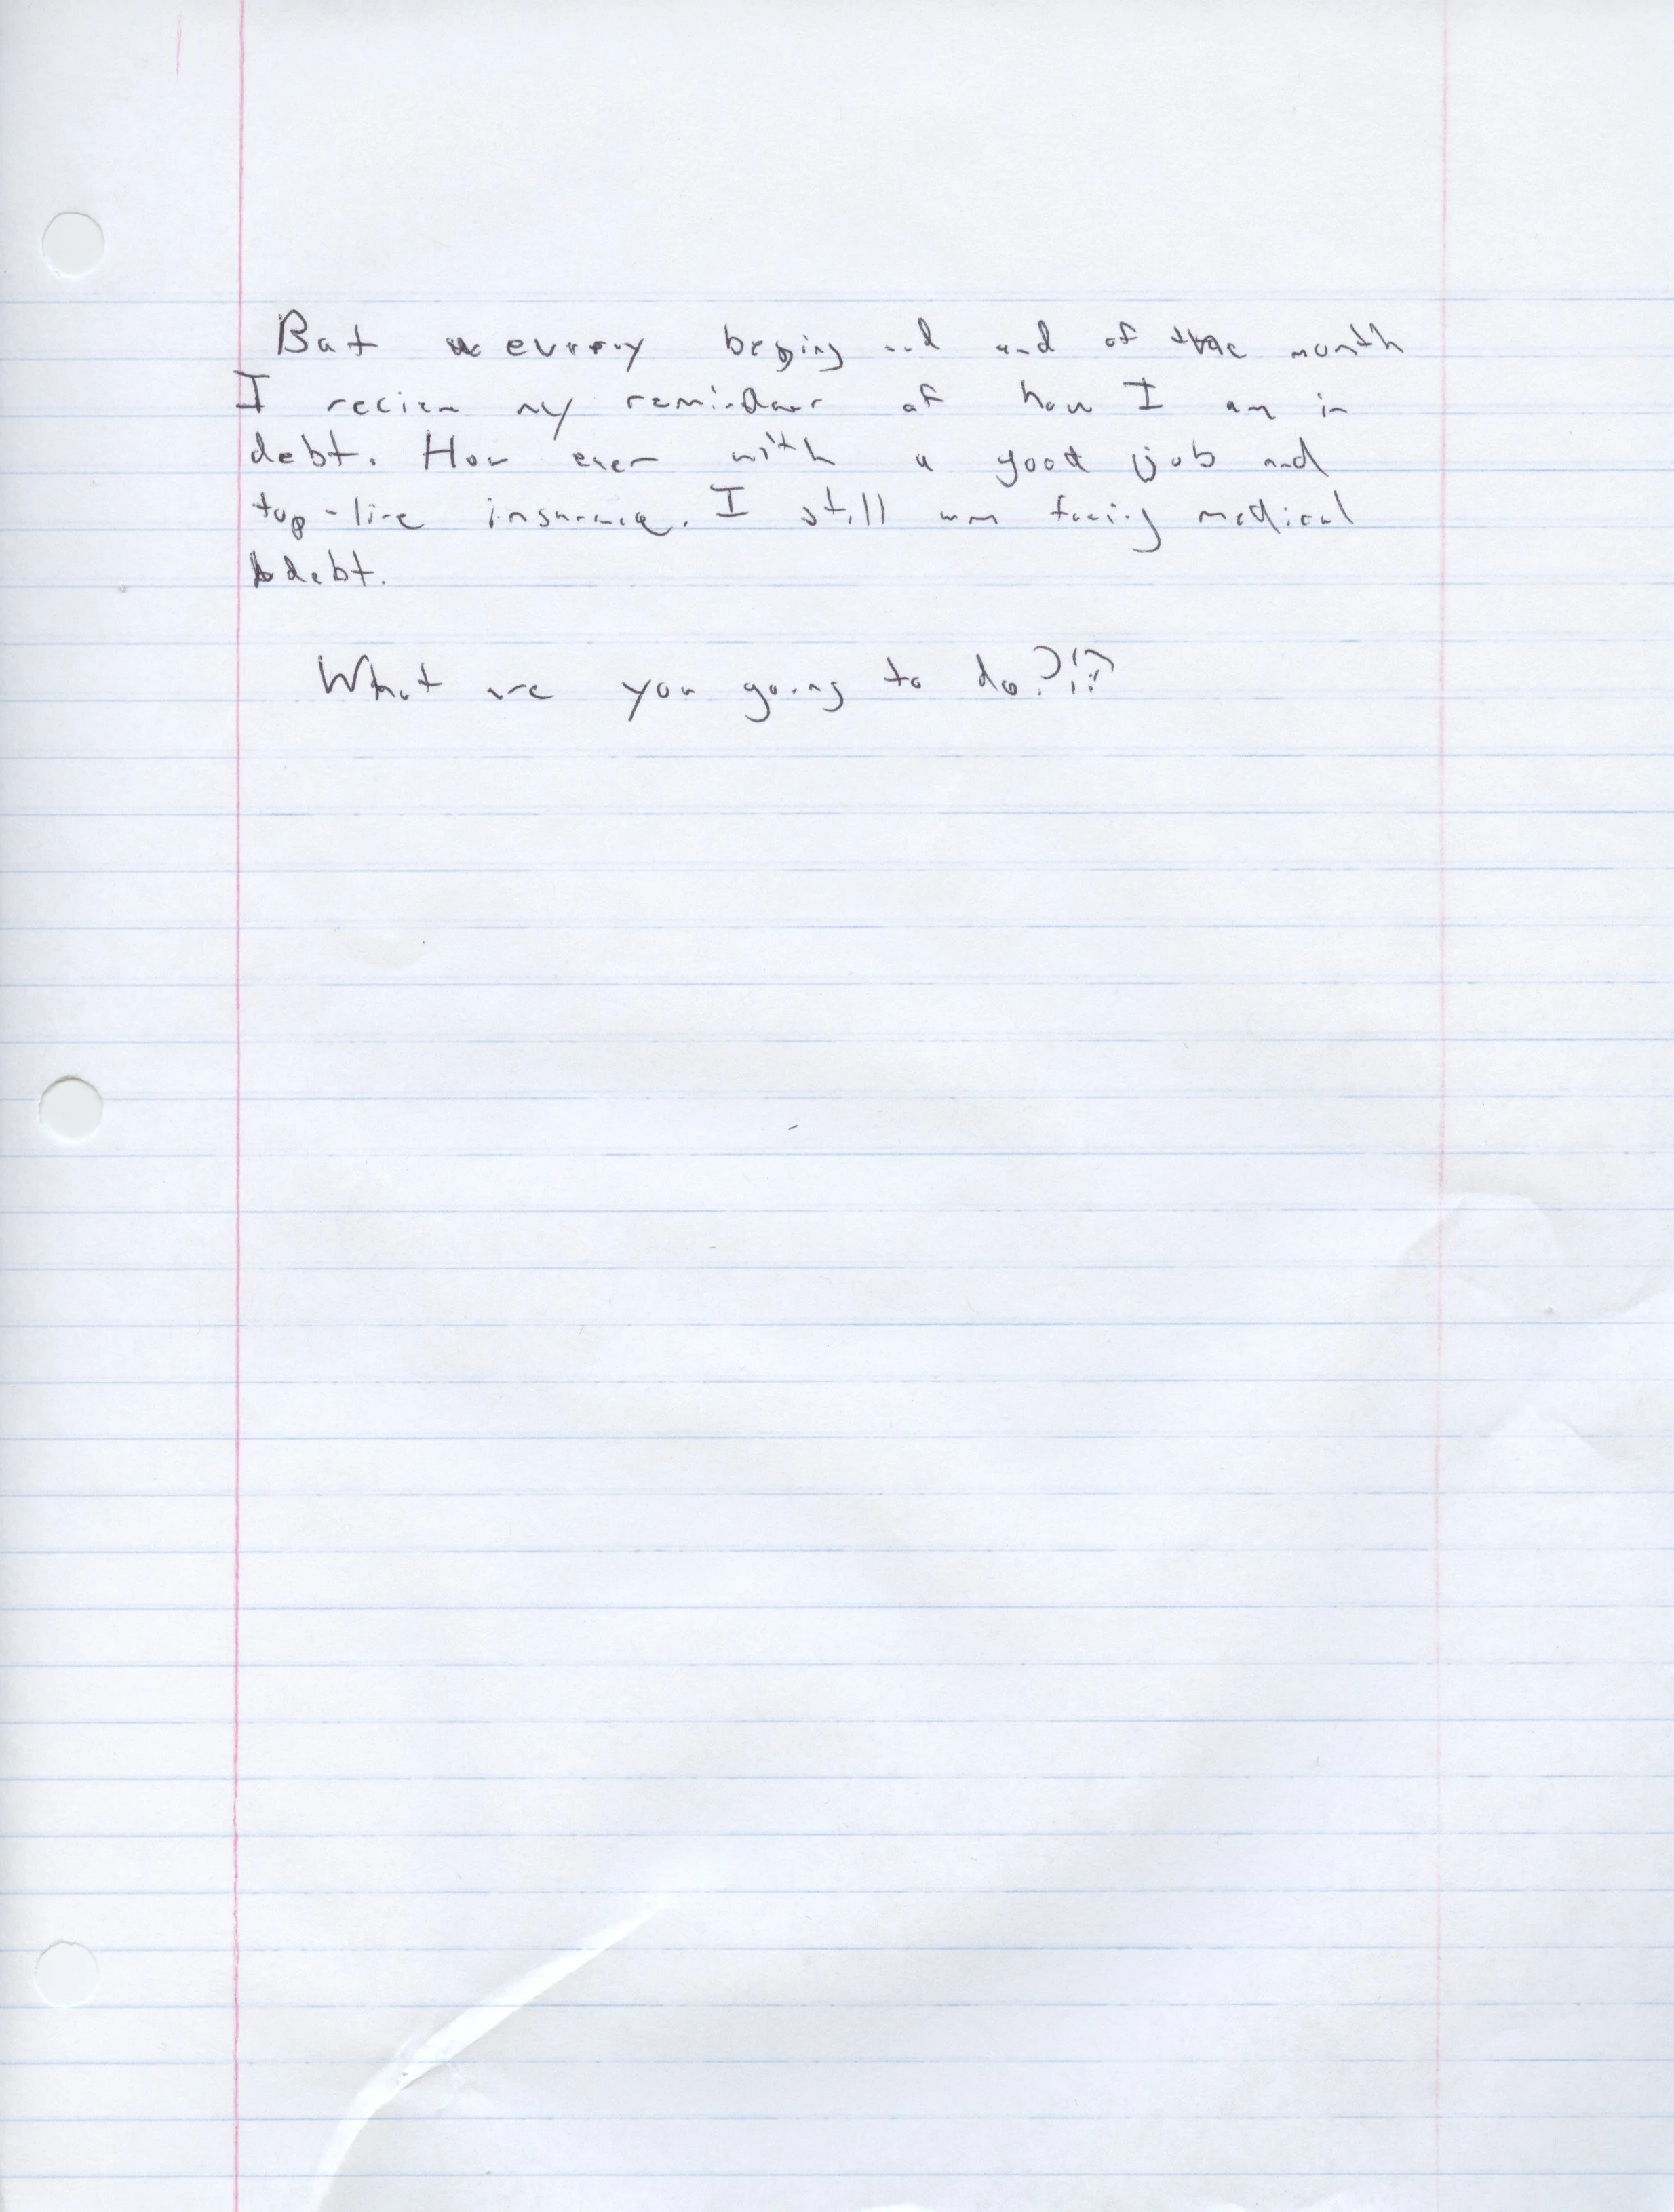 But every begging and end of the month
I recien my reminder of how I am in
debt. How ever with a good job and
top-line insurance. I still am facing medical
debt.
What are you going to do?!?